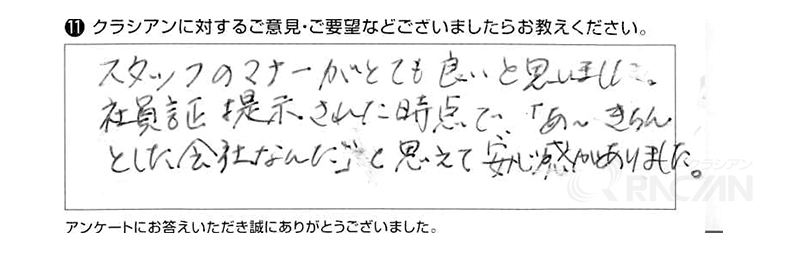 ⑪ クラシアンに対するご意見・ご要望などございましたらお教えください。
スタッフのマナーがとても良いと思いました。
社員証提示された時点で、「あ〜きちん
とした会社なんだ」と思えて安心感がありました。
クラシアン
QRACIAN
アンケートにお答えいただき誠にありがとうございました。